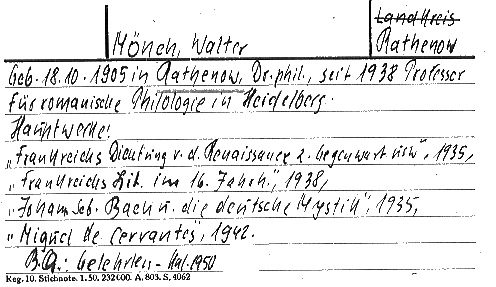 Landkreis
Mönch, Walter
Rathenow
Geb. 18.10.1905 in Rathenow, Dr. phil., seit 1938 Professor
für romanische Philologie in Heidelberg.
Hauptwerke:
„Frankreichs Dichtung v. d. Renaissance z. Gegenwart usw", 1935,
„Frankreichs Lit. im 16. Jahrh.", 1938,
„Johann Seb. Bach u. die deutsche Mystik", 1935,
„Miguel de Cervantes", 1942.
B.Qu.: Gelehrten-Kal. 1950
Reg. 10. Stichnote. 1. 50. 232600. A. 803. S. 4062